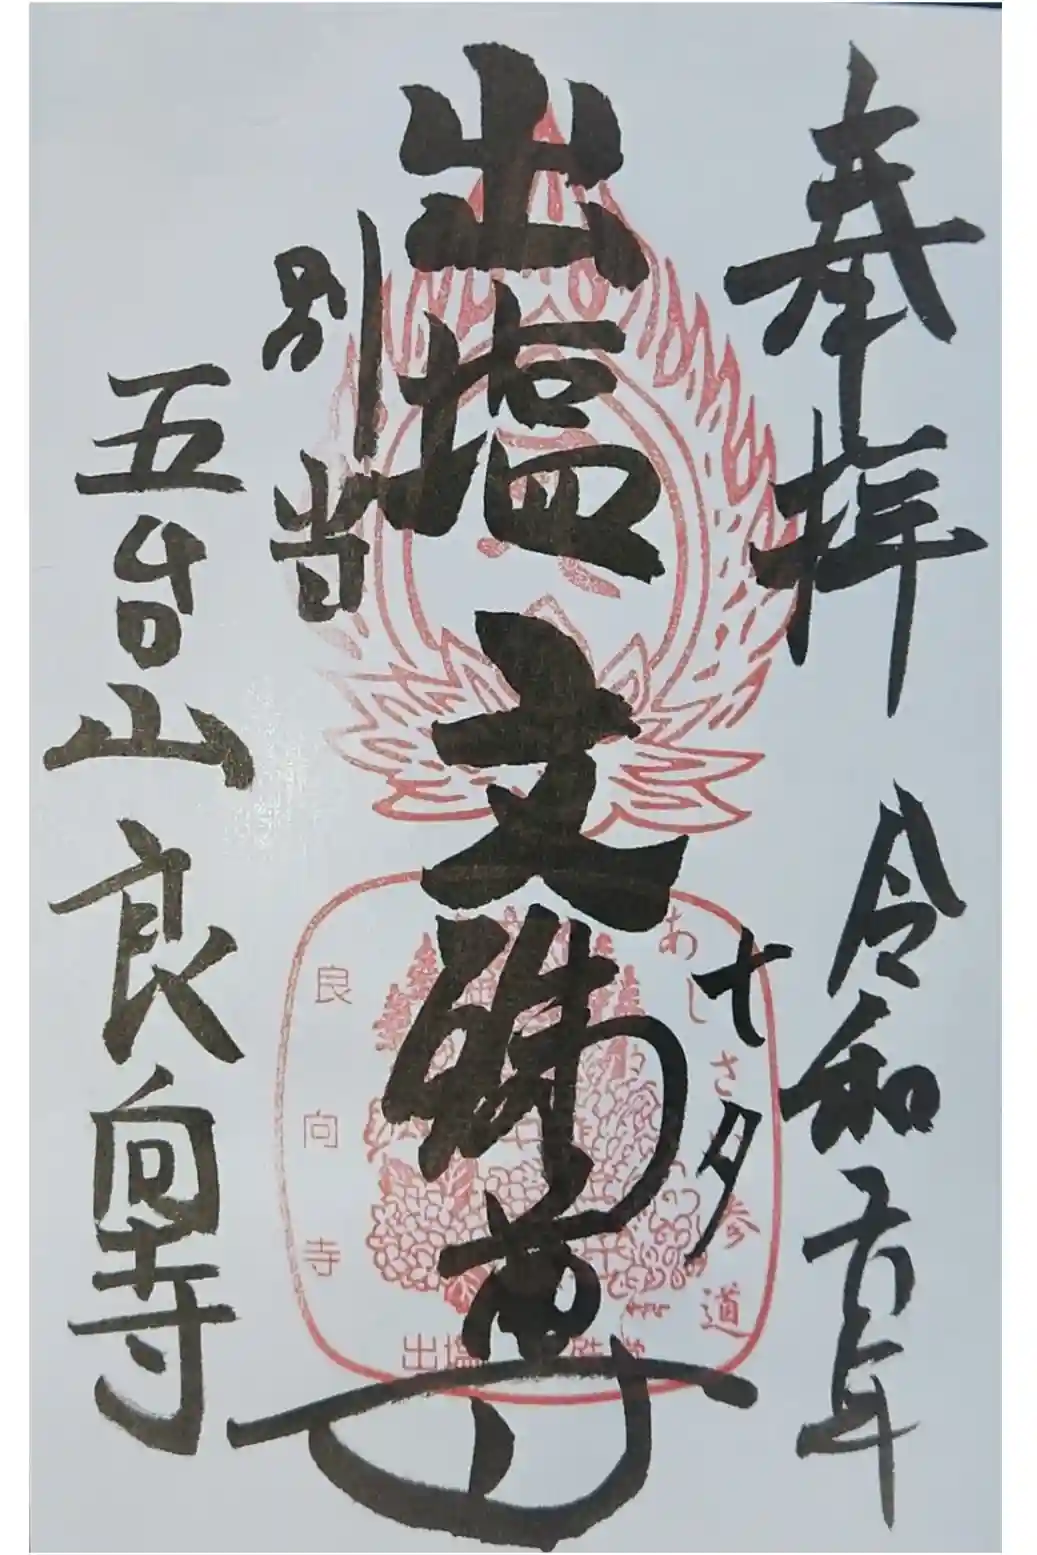 奉拝
令和五年
七夕
出塩文殊尊
別当
五台山良向寺
あじさ 参道
良向寺
出塩